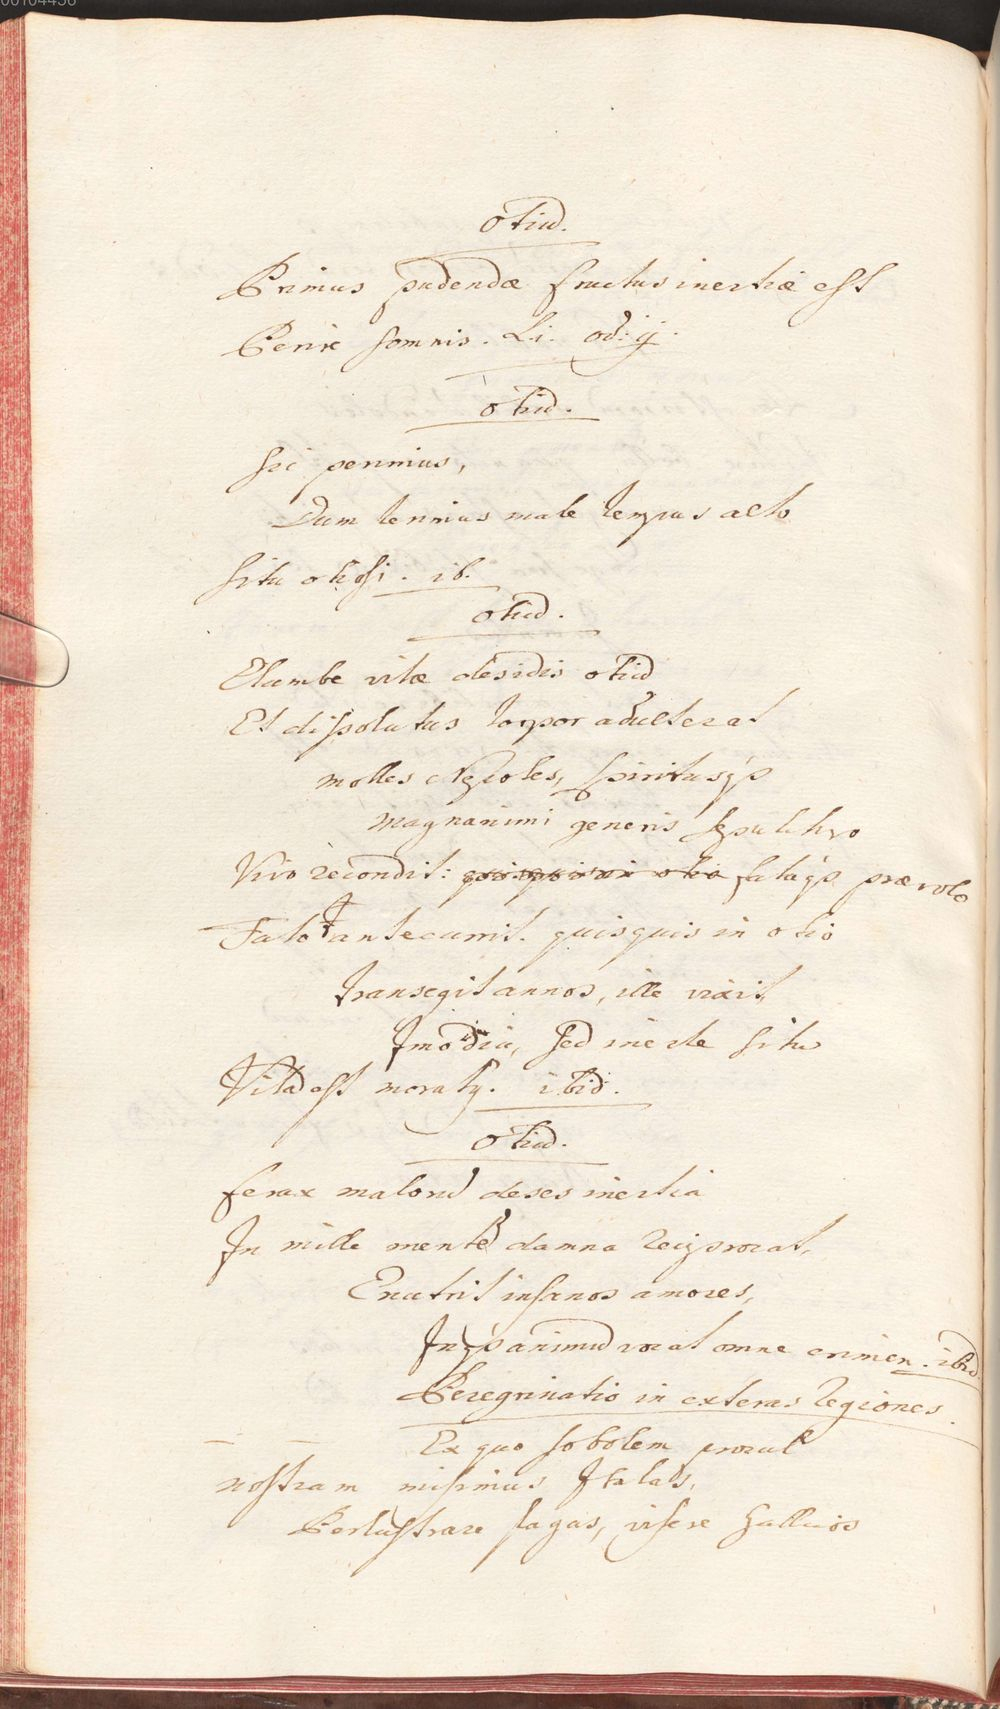 00104436
Otiū.
Primus pudendæ fructus inertiæ est
Perire somnis. Li. od: ij.
Otiū.
sic perimus,
Dum terimus male tempus alto
situ otiosi. ib.
Otiū.
Elumbe vitæ desidis otiū
Et dissolutus torpor adulterat
molles Nepotes, spiritusq́ꝫ
magnanimi generis sepulchro
Vivo recondit: quisquis in otio fataq́ꝫ prævolo
Fato antecurrit. quisquis in otio
transegit annos, ille vixit,
Imò diu, sed inerte situ
Vitā est moratꝯ. ibid.
Otiū.
ferax malorū deses inertia
In mille mentē damna reciprocat,
Enutrit insanos amores,
Inq́ꝫ animū vocat omne crimen. ibid
Peregrinatio in exteras regiones.
Ex quo sobolem procul
nostram misimus Italas,
Perlustrare plagas, visere Gallicos